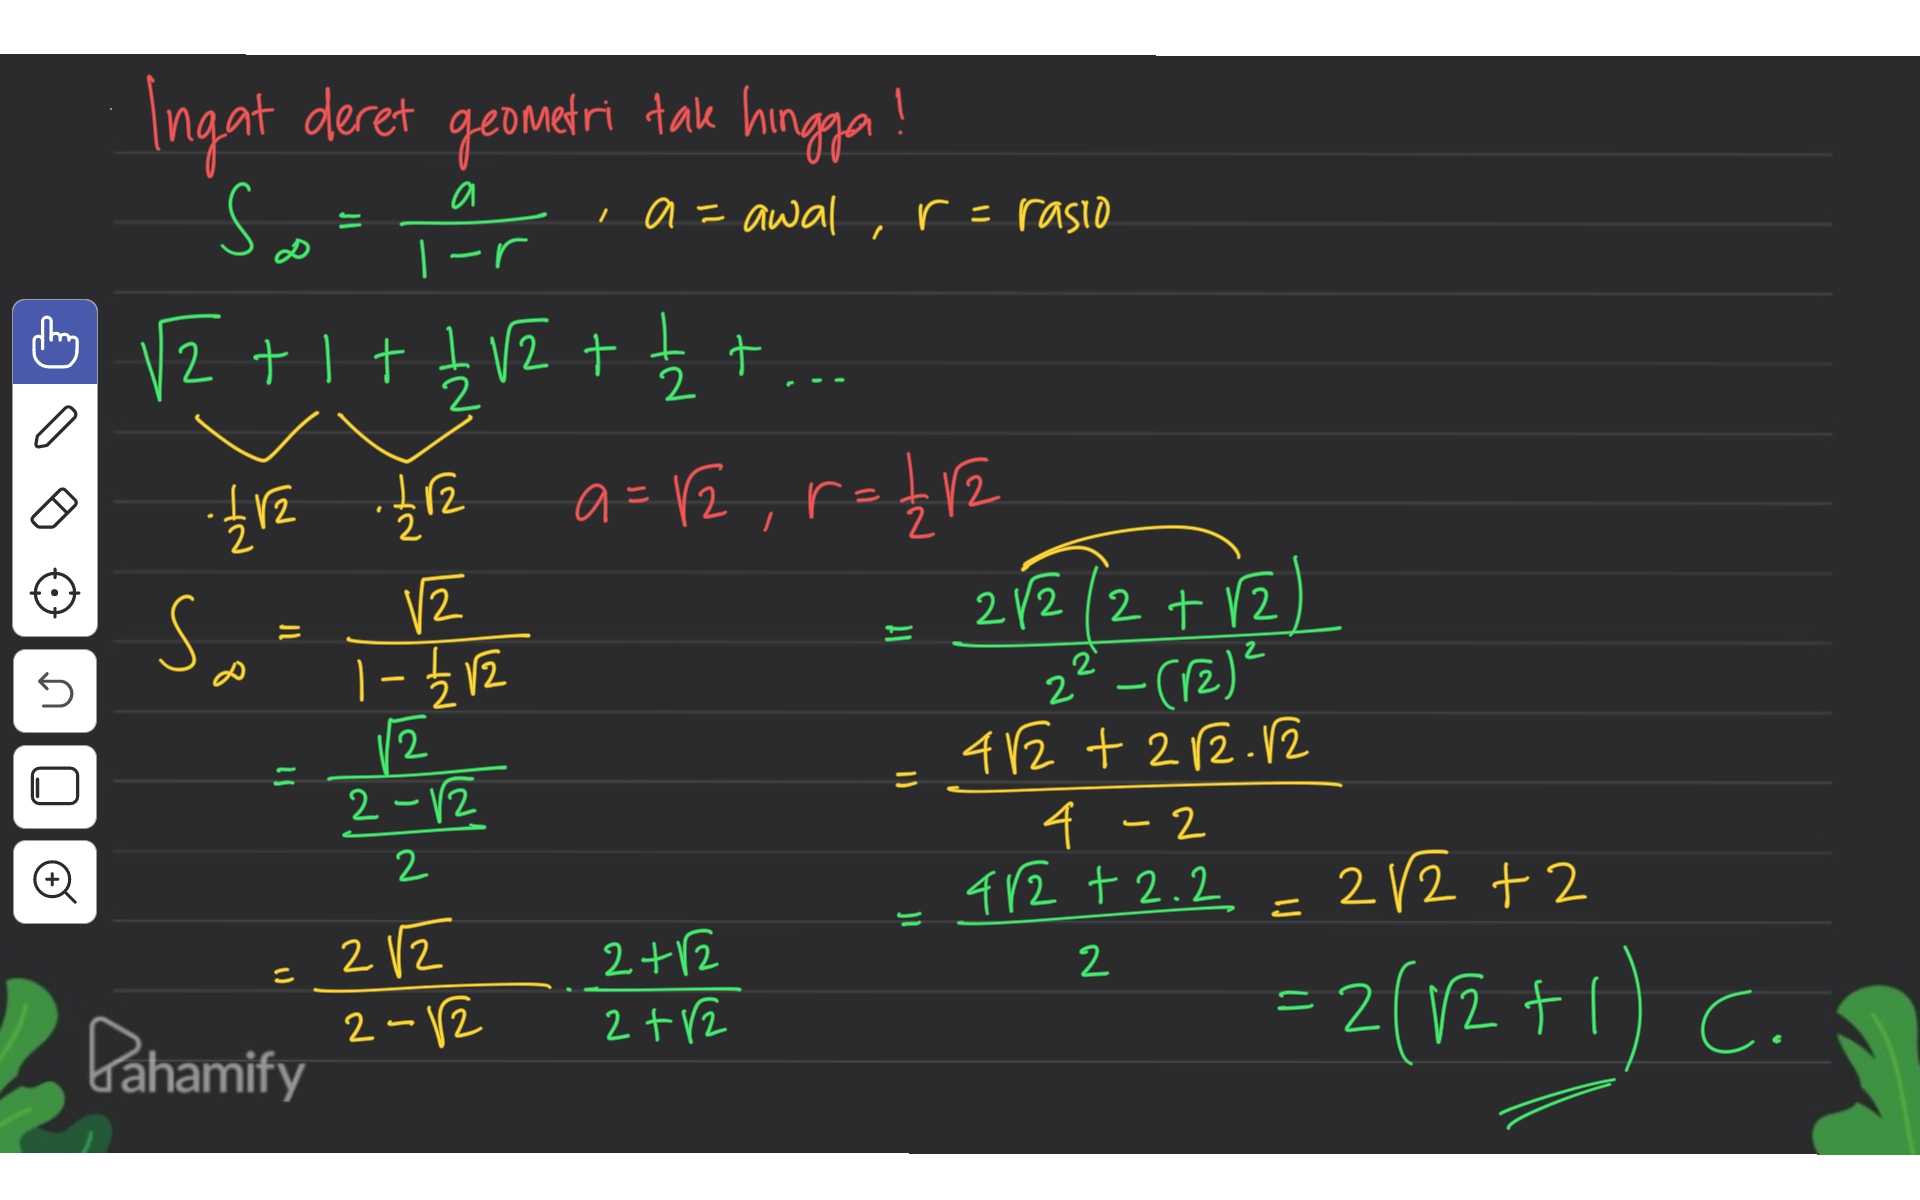 Ingat deret geometri tak hingga!
S∞ = a/(1-r) , a = awal , r = rasio
√2 + 1 + 1/2 √2 + 1/2 + ...
·1/2 √2 ·1/2 √2 a = √2 , r = 1/2 √2
S∞ = √2/(1 - 1/2 √2)
= √2/((2-√2)/2)
= 2√2/(2-√2) · (2+√2)/(2+√2)
= 2√2(2 + √2)/(2² - (√2)²)
= (4√2 + 2√2.√2)/(4 - 2)
= (4√2 + 2.2)/2 = 2√2 + 2
= 2(√2 + 1) C.
Pahamify